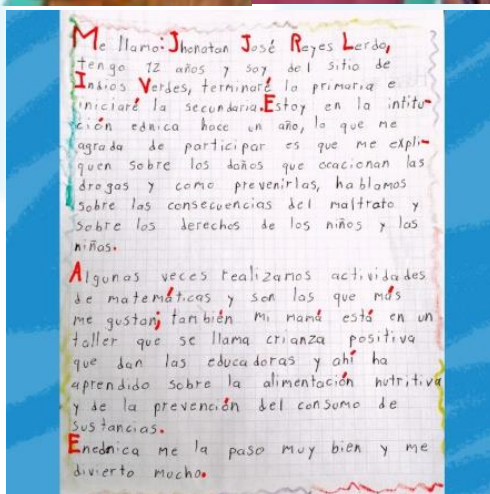 Me llamo: Jhonatan José Reyes Lerdo,
tengo 12 años y soy del sitio de
Indios Verdes, terminaré la primaria e
iniciaré la secundaria. Estoy en la intitu-
ción ednica hace un año, lo que me
agrada de participar es que me expli-
quen sobre los daños que ocacionan las
drogas y como prevenirlas, hablamos
sobre las consecuencias del maltrato y
sobre los derechos de los niños y las
niñas.
Algunas veces realizamos actividades
de matemáticas y son las que más
me gustan; también mi mamá está en un
taller que se llama crianza positiva
que dan las educadoras y ahí ha
aprendido sobre la alimentación nutritiva
y de la prevención del consumo de
sustancias.
Enednica me la paso muy bien y me
divierto mucho.